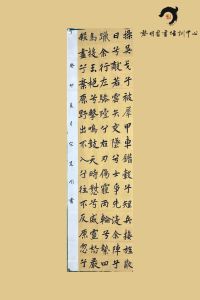 書畫培訓中心
操吳戈兮被犀甲車錯轂兮短兵接旌蔽
日兮敵若雲矢交墜兮士爭先淩余陣兮
躐余行左驂殪兮右刃傷霾兩輪兮縶四
馬援玉枹兮擊鳴鼓天時懟兮威靈怒嚴
殺盡兮棄原野出不入兮往不反原忽兮